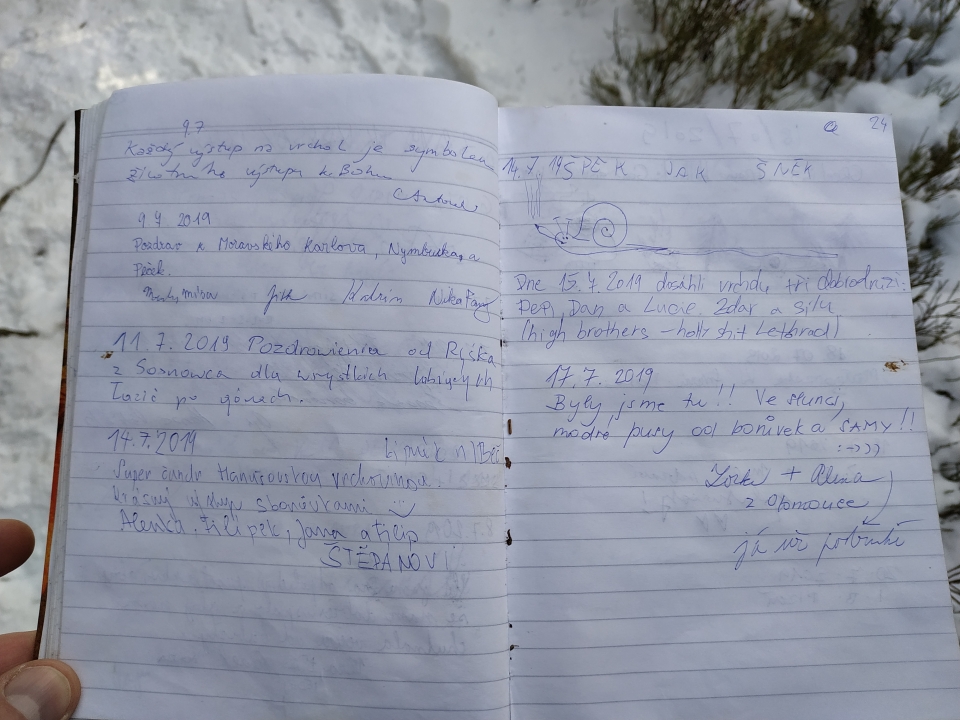 9.7
Každý výstup na vrchol je symbolem
životního výstupu k Bohu
9 7 2019
Pozdrav z Moravského Karlova, Nymburka, a
Jirk
Nika
11.7.2019 Pozdrowienia od Ryśka
z Sosnowca dla wsystkich lobiących
łazić po górach.
14.7.2019 Lipník n/Beč
Super
Krásný výstup s borůvkami
Alenka, Filípek, Jana a Filip
ŠTĚPANOVI
24
14.7. 19 SPEK JAK ŠNEK
Dne 15.7.2019 dosáhli vrcholu tři dobrodruzi:
Pepi, Dan a Lucie. Zdar a sílu
(high brothers - holly shit Letbrod)
17.7.2019
Byly jsme tu!! Ve slunci,
modré pusy od borůvek a SAMY!!
:-)))
+ Alena
z Olomouce
já už